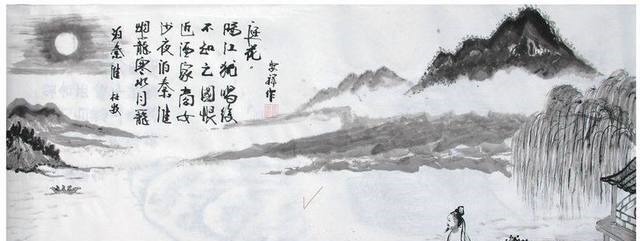 泊秦淮 杜牧
烟龍寒水月龍
沙夜泊秦淮
近酒家商女
不知亡國恨
隔江犹唱後
庭花.
祥作